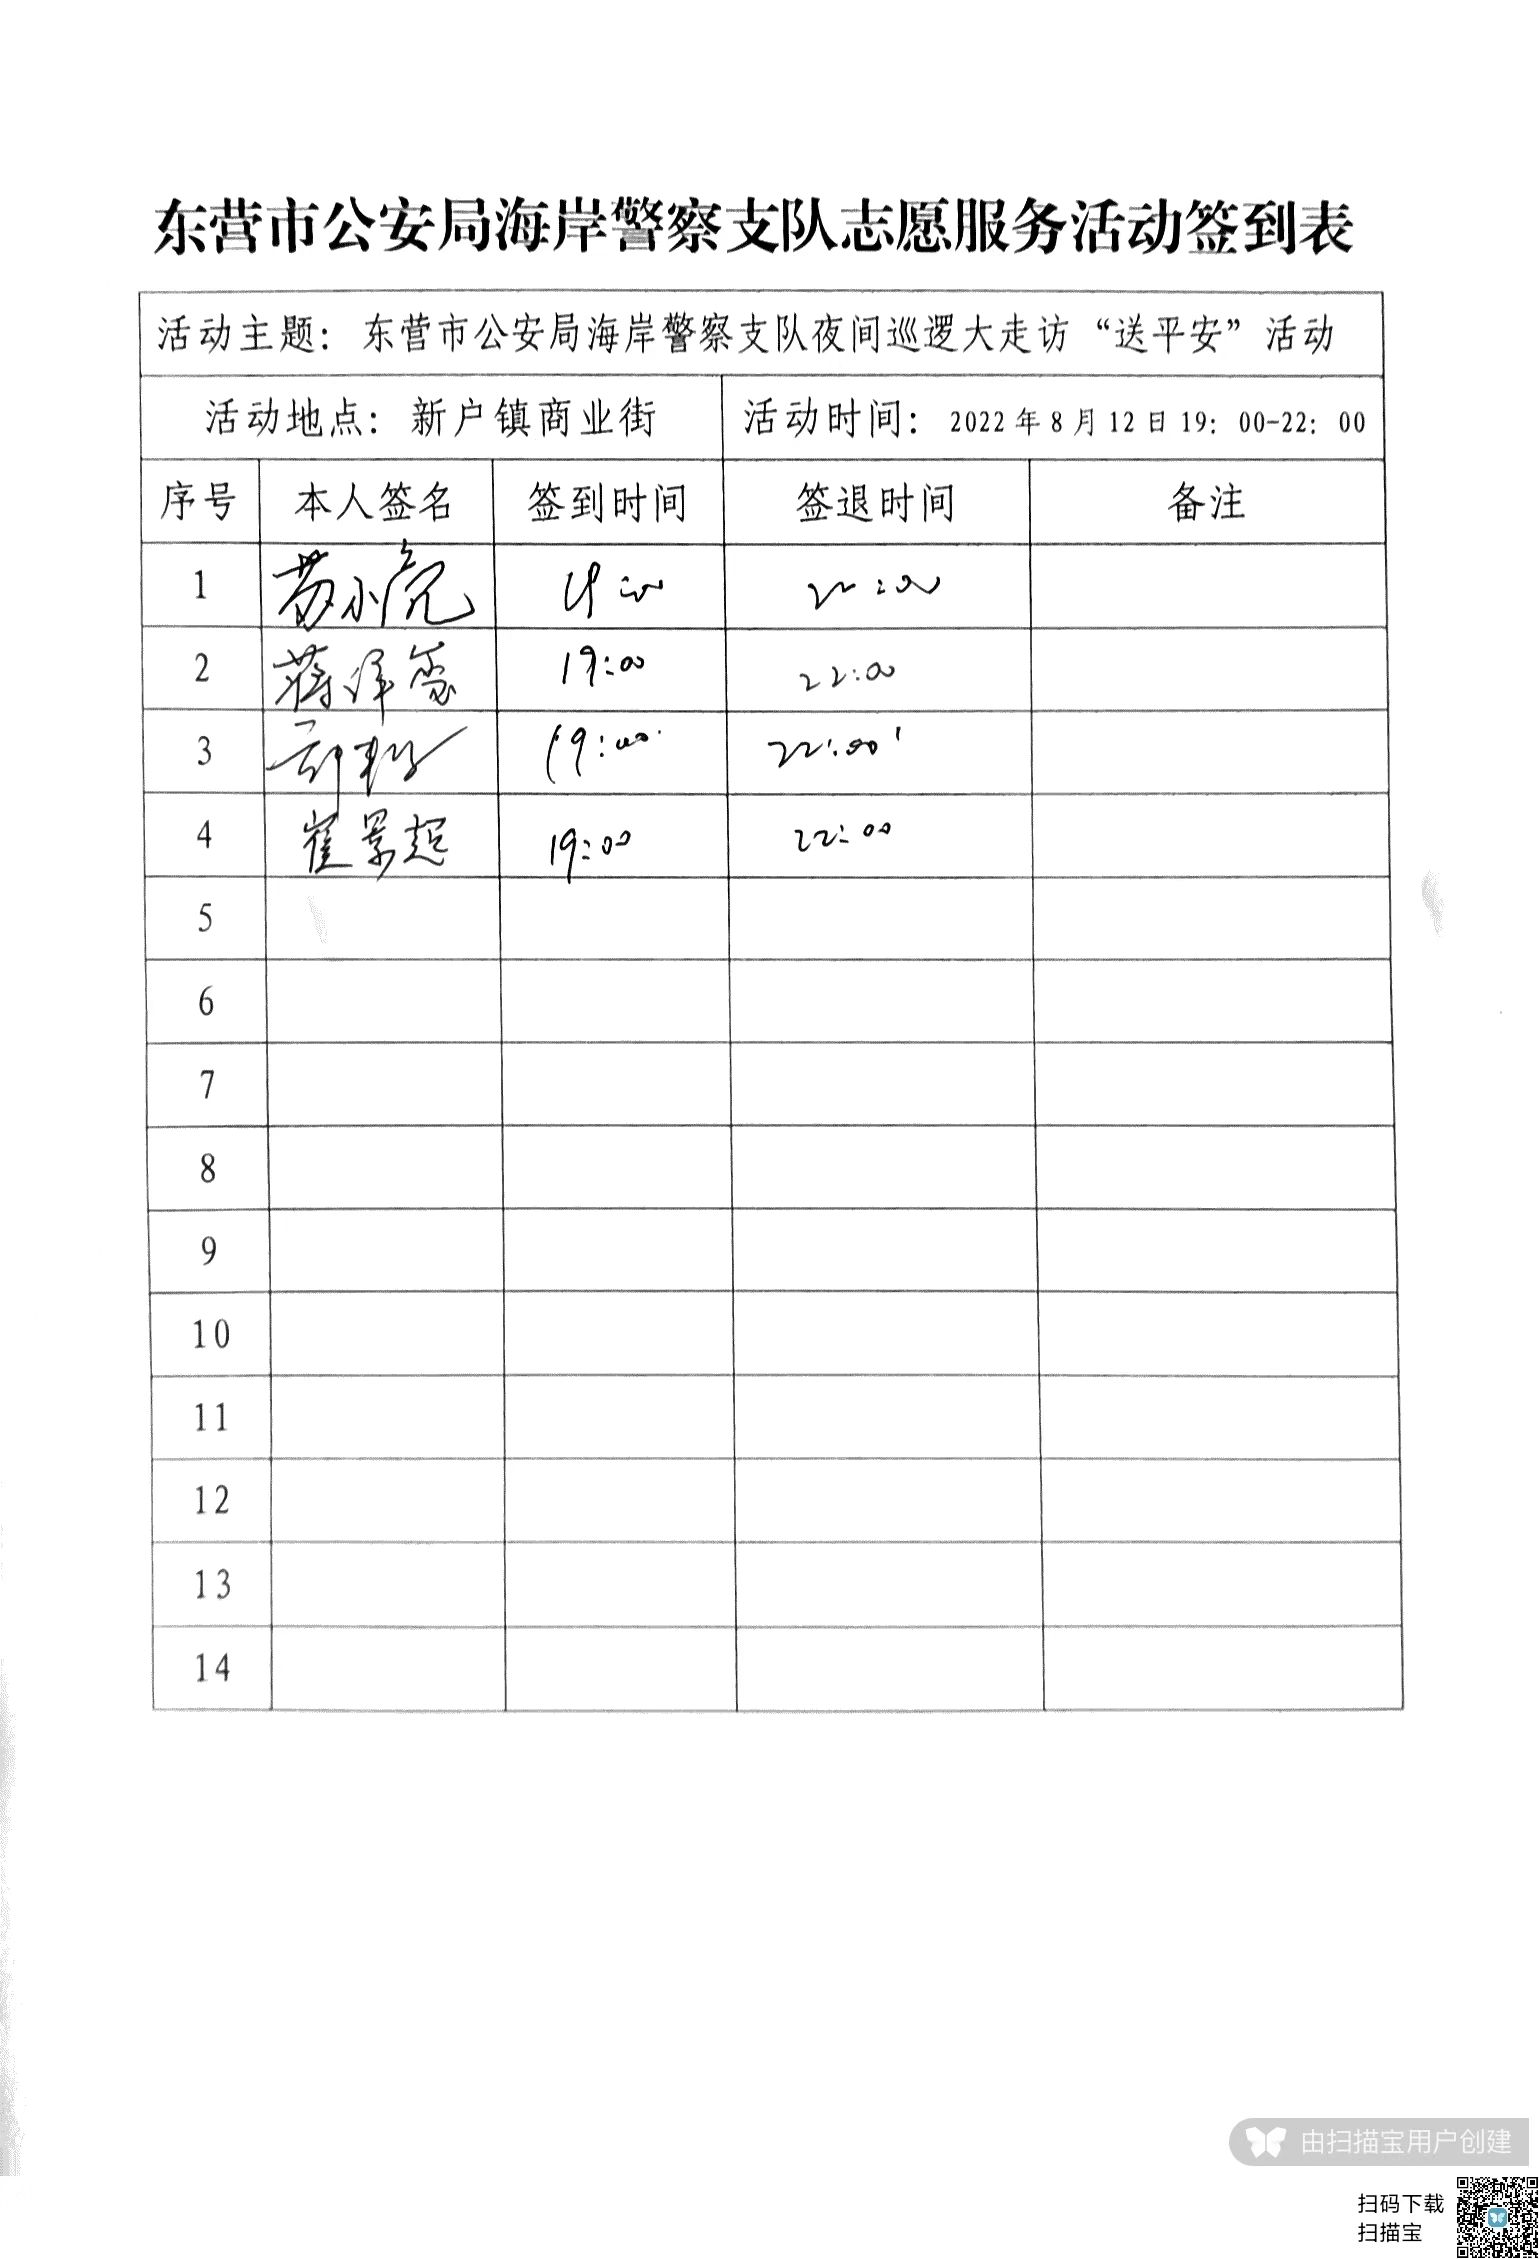 东营市公安局海岸警察支队志愿服务活动签到表
活动主题：东营市公安局海岸警察支队夜间巡逻大走访“送平安”活动
活动地点：新户镇商业街 活动时间：2022年8月12日19：00-22：00
序号 本人签名 签到时间 签退时间 备注
1 苏小亮 19:00 22:00
2 蒋泽 19:00 22:00
3 19:00 22:00
4 崔景超 19:00 22:00
5
6
7
8
9
10
11
12
13
14
由扫描宝用户创建
扫码下载
扫描宝